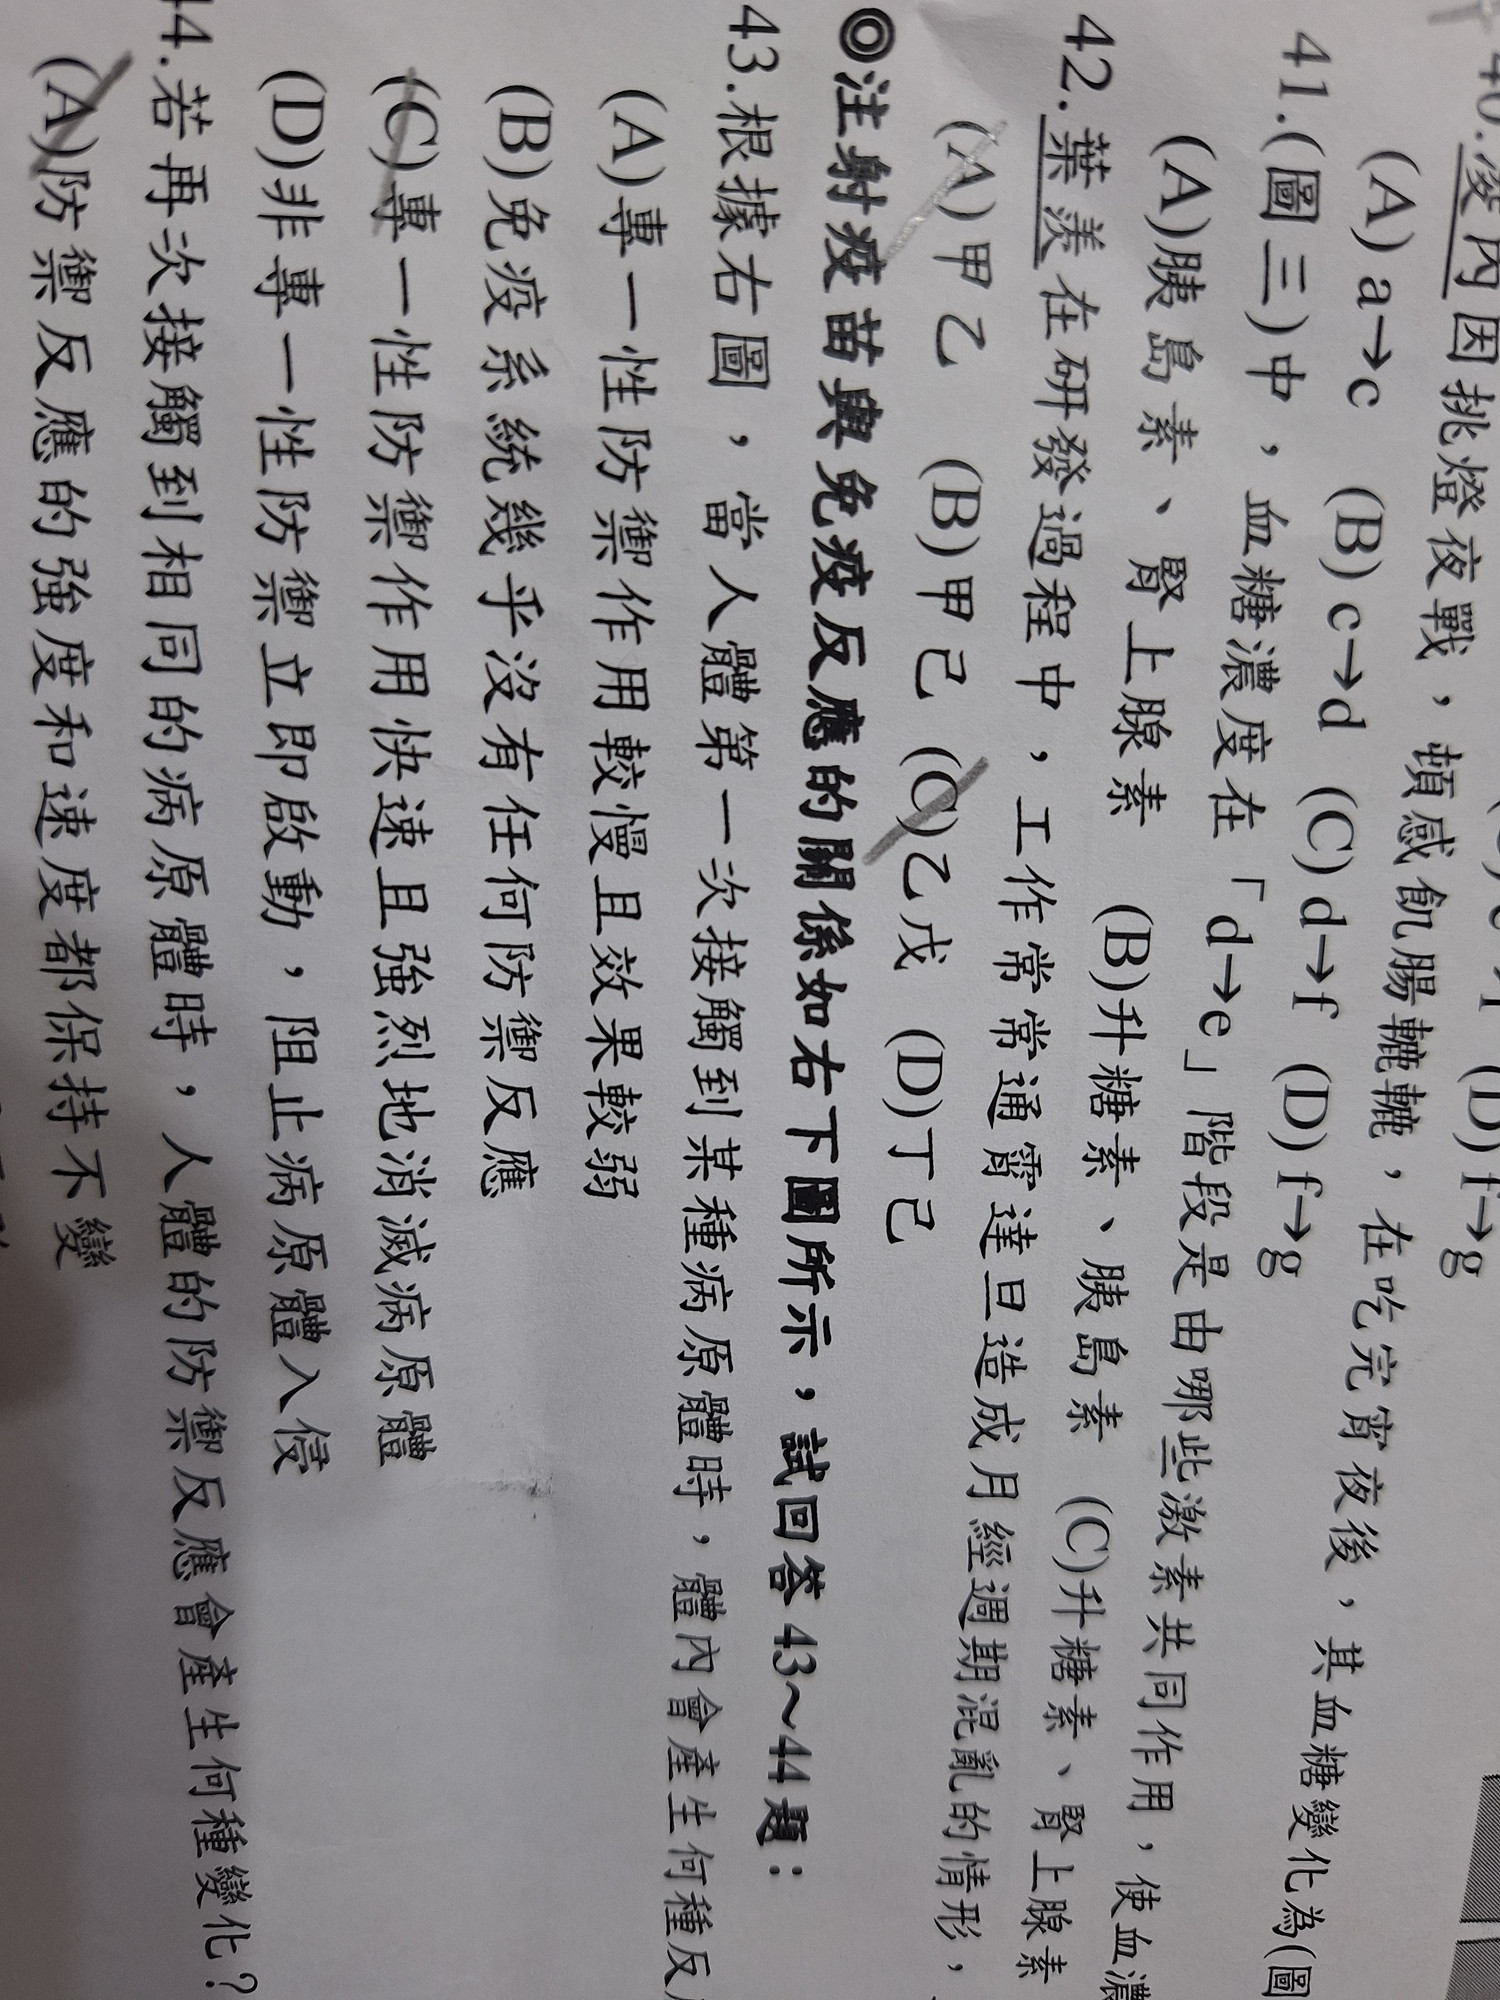 40.凌內因挑燈夜戰，頓感飢腸轆轆，在吃完宵夜後，其血糖變化為(圖
(A) a→c (B) c→d (C) d→f (D) f→g
41.(圖三)中，血糖濃度在「d→e」階段是由哪些激素共同作用，使血濃
(A)胰島素、腎上腺素 (B)升糖素、胰島素 (C)升糖素、腎上腺素
42.葉羨在研發過程中，工作常常通霄達旦造成月經週期混亂的情形，
(A)甲乙 (B)甲己 (C)乙戊 (D)丁己
◎注射疫苗與免疫反應的關係如右下圖所示，試回答43～44題：
43.根據右圖，當人體第一次接觸到某種病原體時，體內會產生何種反
(A)專一性防禦作用較慢且效果較弱
(B)免疫系統幾乎沒有任何防禦反應
(C)專一性防禦作用快速且強烈地消滅病原體
(D)非專一性防禦立即啟動，阻止病原體入侵
44.若再次接觸到相同的病原體時，人體的防禦反應會產生何種變化？
(A)防禦反應的強度和速度都保持不變